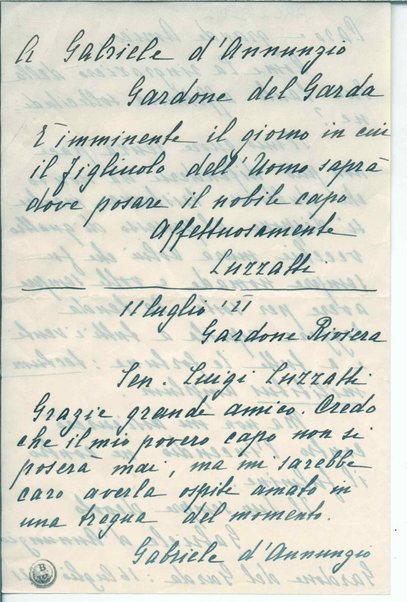 A Gabriele d'Annunzio
Gardone del Garda
È imminente il giorno in cui
il figliuolo dell'Uomo saprà
dove posare il nobile capo
Affettuosamente
Luzzatti
11 luglio '21
Gardone Riviera
Sen. Luigi Luzzatti
Grazie grande amico. Credo
che il mio povero capo non si
poserà mai, ma mi sarebbe
caro averla ospite amato in
una tregua del momento.
Gabriele d'Annunzio